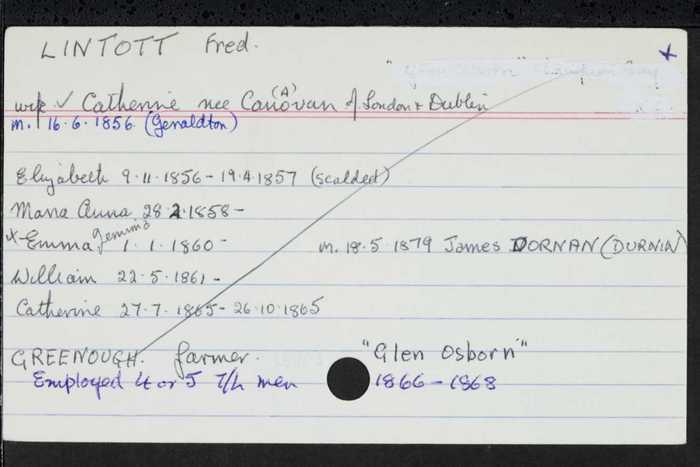 LINTOTT Fred.
x
wife ✓ Catherine nee Can(A)ovan of London & Dublin
m. 16.6.1856 (Geraldton)
Elizabeth 9.11.1856 - 19.4.1857 (scalded)
Maria Anna 28.2.1858 -
x Emma Jemima 1.1.1860 - m. 18.5.1879 James DORNAN (DURNIN)
William 22.5.1861 -
Catherine 27.7.1865 - 26.10.1865
GREENOUGH. farmer. "Glen Osborn"
Employed 4 or 5 T/L men 1866 - 1868